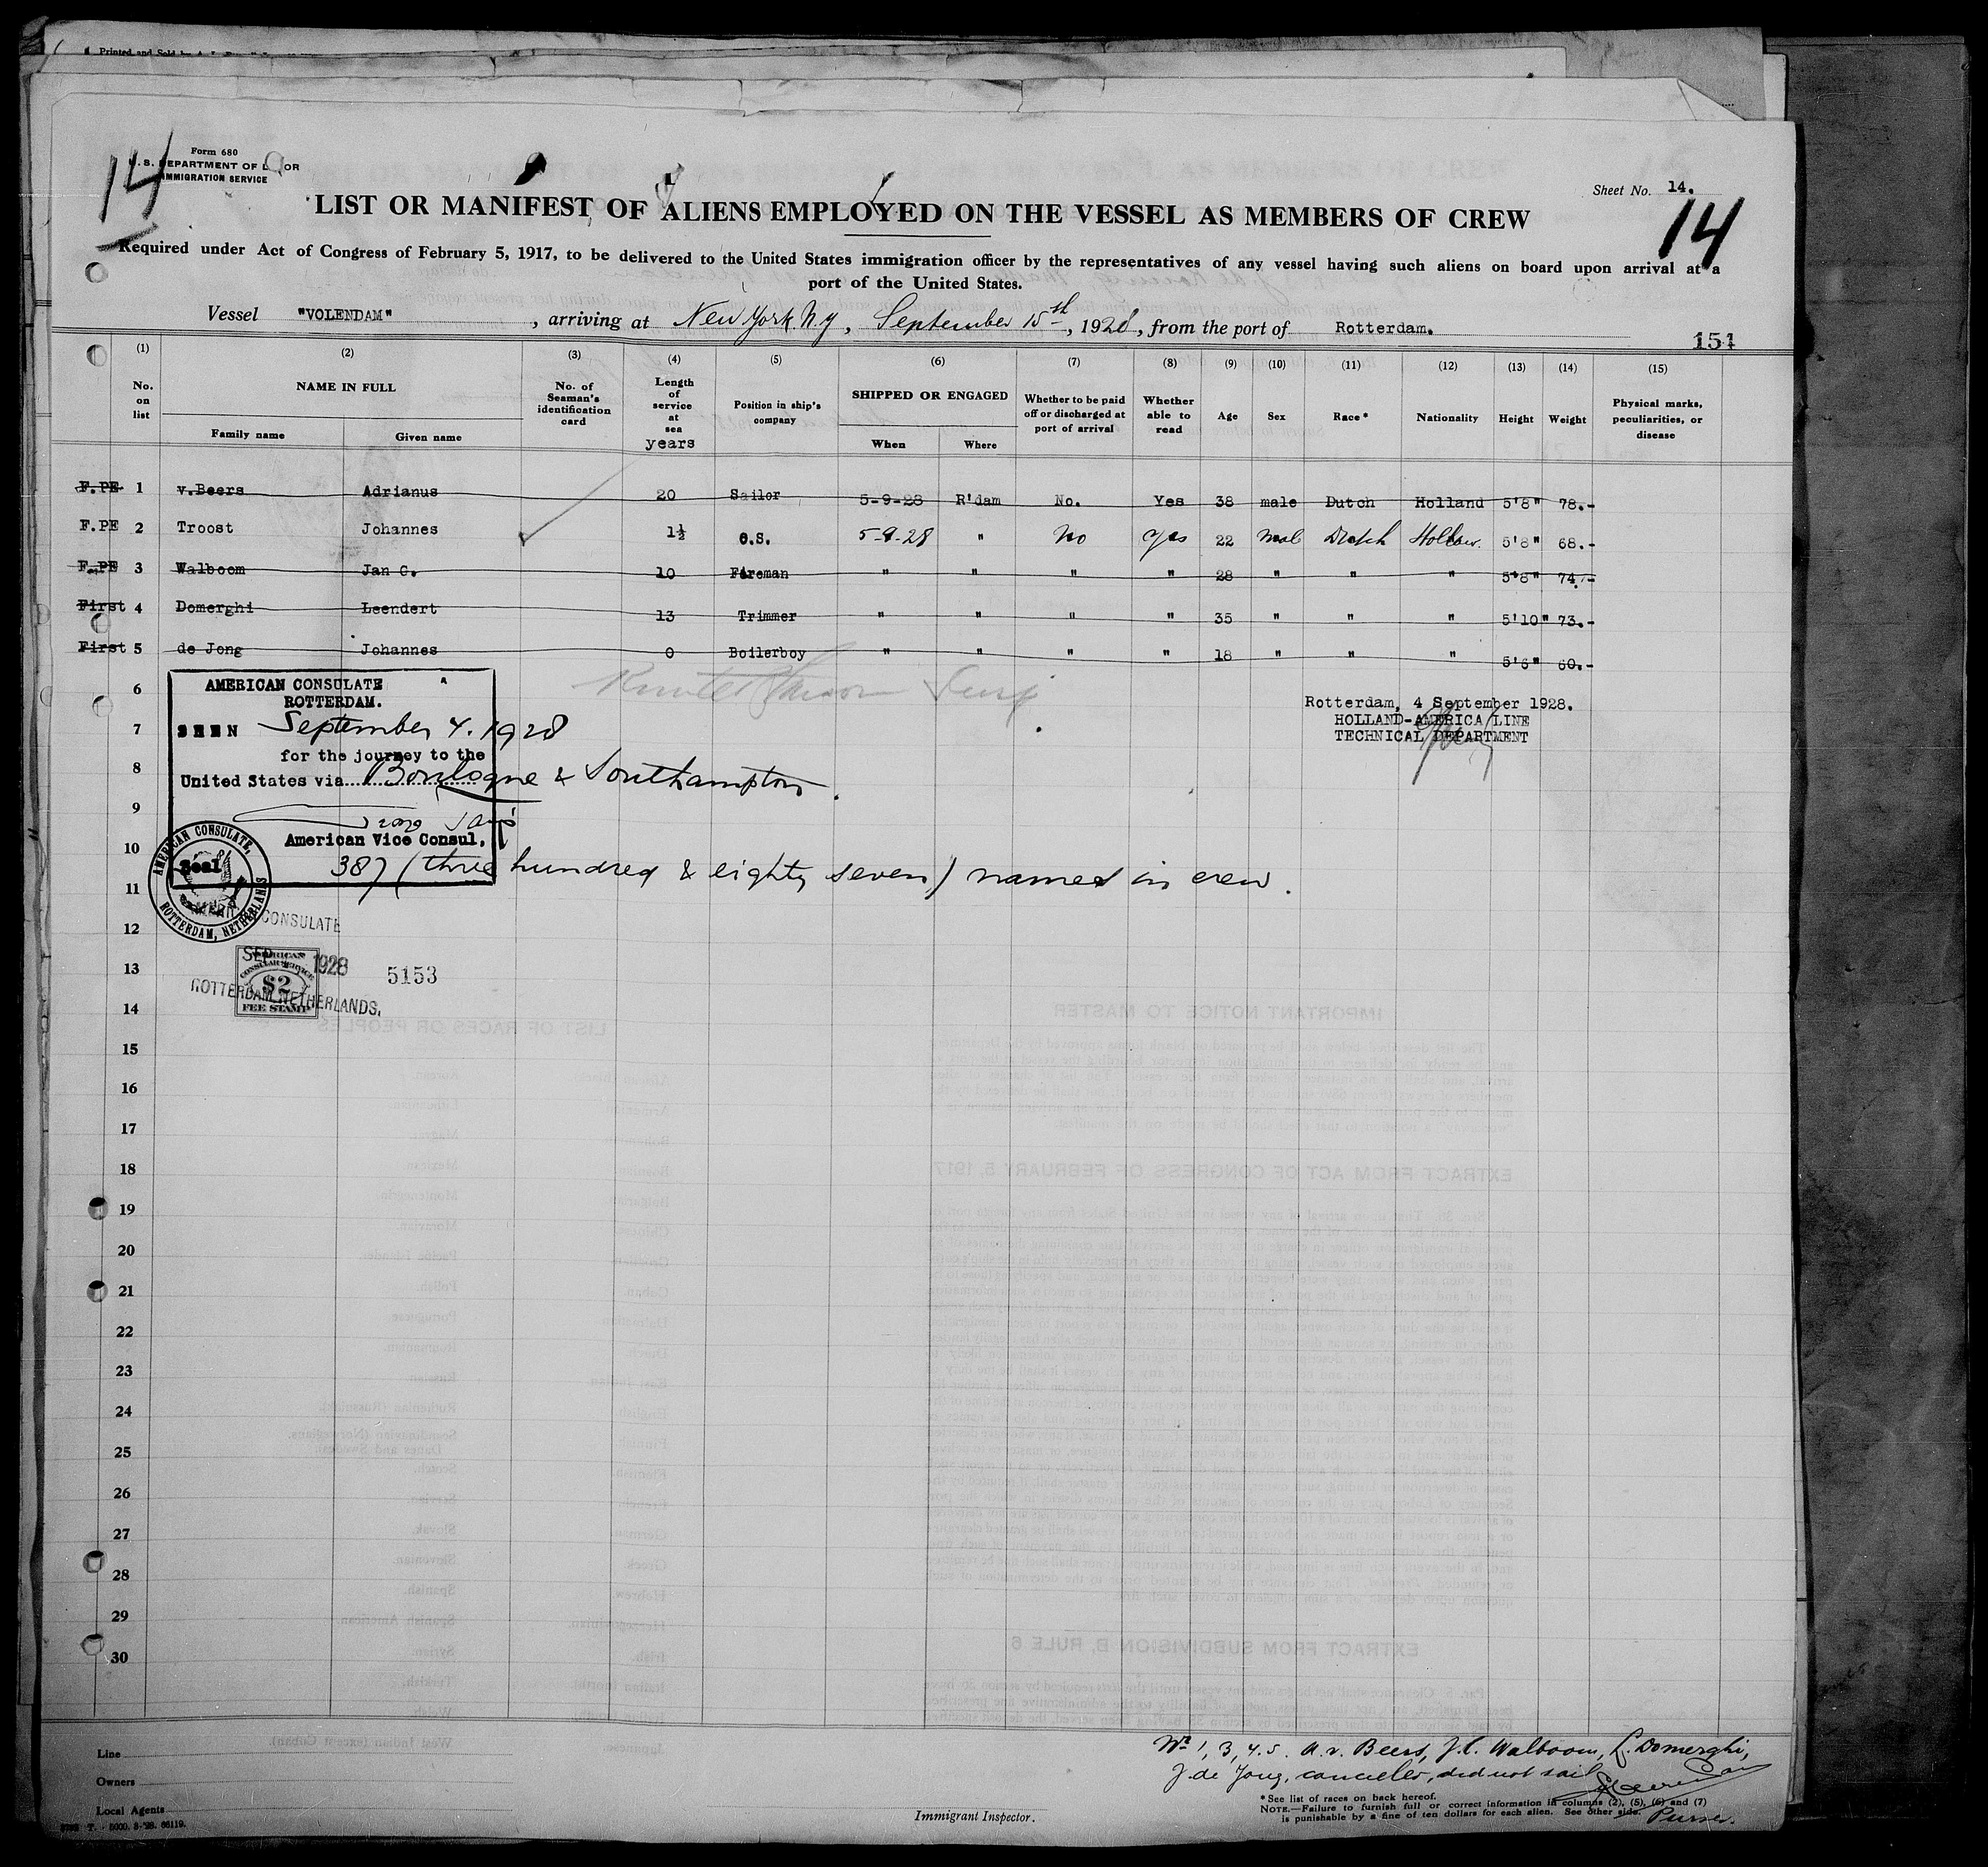 Printed and Sold by
14
Form 680
U. S. DEPARTMENT OF LABOR
IMMIGRATION SERVICE
Sheet No. 14.
14
LIST OR MANIFEST OF ALIENS EMPLOYED ON THE VESSEL AS MEMBERS OF CREW
Required under Act of Congress of February 5, 1917, to be delivered to the United States immigration officer by the representatives of any vessel having such aliens on board upon arrival at a
port of the United States.
Vessel "VOLENDAM", arriving at New York N.Y, September 15st, 1928, from the port of Rotterdam.
151
(1) (2) (3) (4) (5) (6) (7) (8) (9) (10) (11) (12) (13) (14) (15)
No. on list
NAME IN FULL
Family name
Given name
No. of Seaman's identification card
Length of service at sea
years
Position in ship's company
SHIPPED OR ENGAGED
When
Where
Whether to be paid off or discharged at port of arrival
Whether able to read
Age
Sex
Race*
Nationality
Height
Weight
Physical marks, peculiarities, or disease
F.PE 1 v.Beers Adrianus 20 Sailor 5-9-28 R'dam No. Yes 38 male Dutch Holland 5'8" 78.-
F.PE 2 Troost Johannes 1½ O.S. 5-9-28 " No yes 22 mal Dutch 5'8" 68.-
F.PE 3 Walboom Jan C. 10 Fireman " " " " 28 " " " 5'8" 74.-
First 4 Domerghi Leendert 13 Trimmer " " " " 35 " " " 5'10" 73.-
First 5 de Jong Johannes 0 Boilerboy " " " " 18 " " " 5'6" 60.-
6
7
8
9
10
11
12
13
14
15
16
17
18
19
20
21
22
23
24
25
26
27
28
29
30
AMERICAN CONSULATE
ROTTERDAM.
SEEN September 4. 1928
for the journey to the
United States via Boulogne & Southampton.
American Vice Consul,
387 (three hundred & eighty seven) names in crew.
Seal
AMERICAN CONSULATE,
ROTTERDAM, NETHERLANDS
Rotterdam, 4 September 1928.
HOLLAND-AMERICA LINE
TECHNICAL DEPARTMENT
CONSULATE
SEP 1928
ROTTERDAM, NETHERLANDS.
AMERICAN
CONSULAR SERVICE
$2
FEE STAMP
5153
Line
Owners
Local Agents
Immigrant Inspector.
No 1, 3, 4.5. A.v. Beers, J.C. Walboom, L. Domerghi,
J. de Jong, cancelled, did not sail
Purser.
*See list of races on back hereof.
NOTE.—Failure to furnish full or correct information in columns (2), (5), (6) and (7)
is punishable by a fine of ten dollars for each alien. See other side.